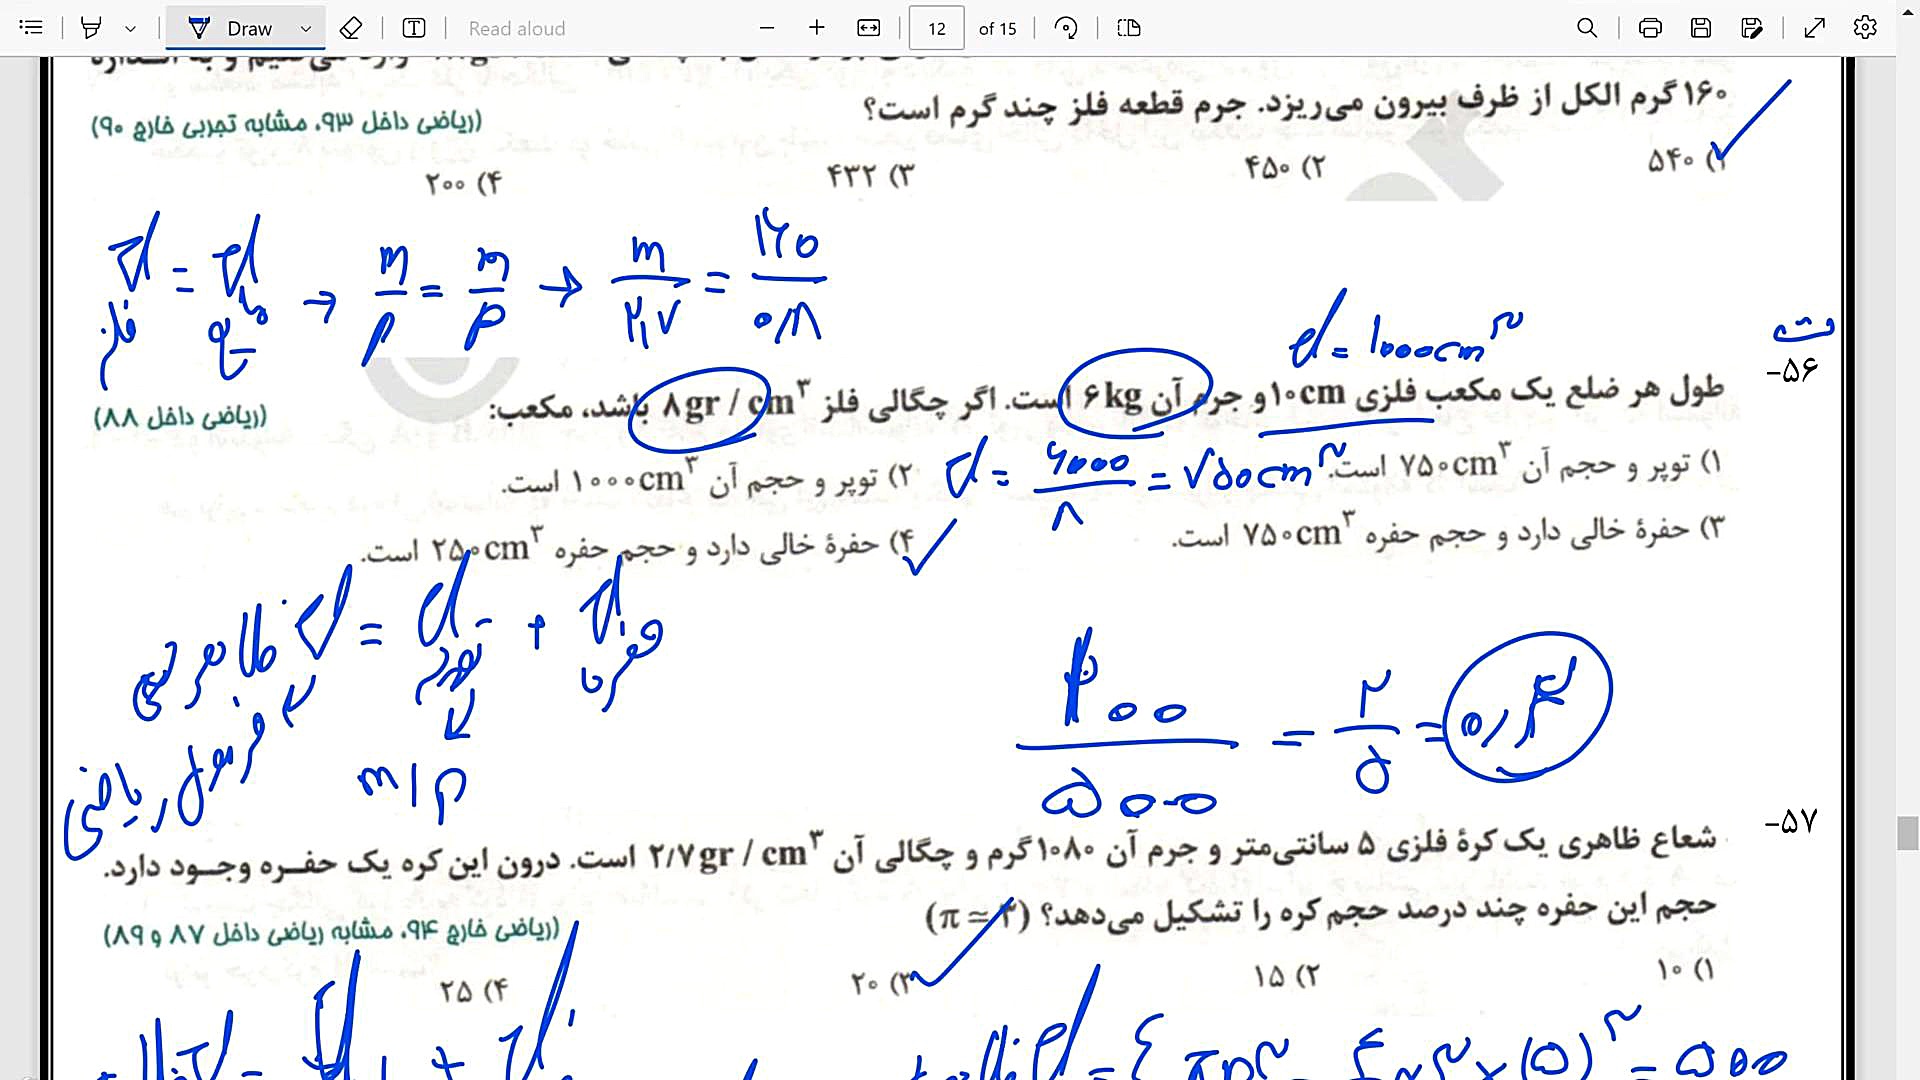 Draw
Read aloud
12 of 15
۱۶۰ گرم الکل از ظرف بیرون می‌ریزد. جرم قطعه فلز چند گرم است؟
(ریاضی داخل ۹۳، مشابه تجربی خارج ۹۰)
۱) ۵۴۰
۲) ۴۵۰
۳) ۴۳۲
۴) ۲۰۰
V فلز = V مایع → m/ρ = m/ρ → m/۲,۷ = ۱۶۰/۰,۸
V = ۱۰۰۰cm۳
تست
-۵۶
طول هر ضلع یک مکعب فلزی ۱۰cm و جرم آن ۶kg است. اگر چگالی فلز ۸gr / cm۳ باشد، مکعب:
(ریاضی داخل ۸۸)
۱) توپر و حجم آن ۷۵۰cm۳ است.
V = ۶۰۰۰/۸ = ۷۵۰cm۳
۲) توپر و حجم آن ۱۰۰۰cm۳ است.
۳) حفرهٔ خالی دارد و حجم حفره ۷۵۰cm۳ است.
۴) حفرهٔ خالی دارد و حجم حفره ۲۵۰cm۳ است.
V ظاهری = V توپر + V حفره
فرمول ریاضی
m/ρ
۲۰۰/۵۰۰ = ۲/۵ = ۰,۴
-۵۷
شعاع ظاهری یک کرهٔ فلزی ۵ سانتی‌متر و جرم آن ۱۰۸۰ گرم و چگالی آن ۲/۷gr / cm۳ است. درون این کره یک حفره وجود دارد.
حجم این حفره چند درصد حجم کره را تشکیل می‌دهد؟ (π ≃ ۳)
(ریاضی خارج ۹۴، مشابه ریاضی داخل ۸۷ و ۸۹)
۱) ۱۰
۲) ۱۵
۳) ۲۰
۴) ۲۵